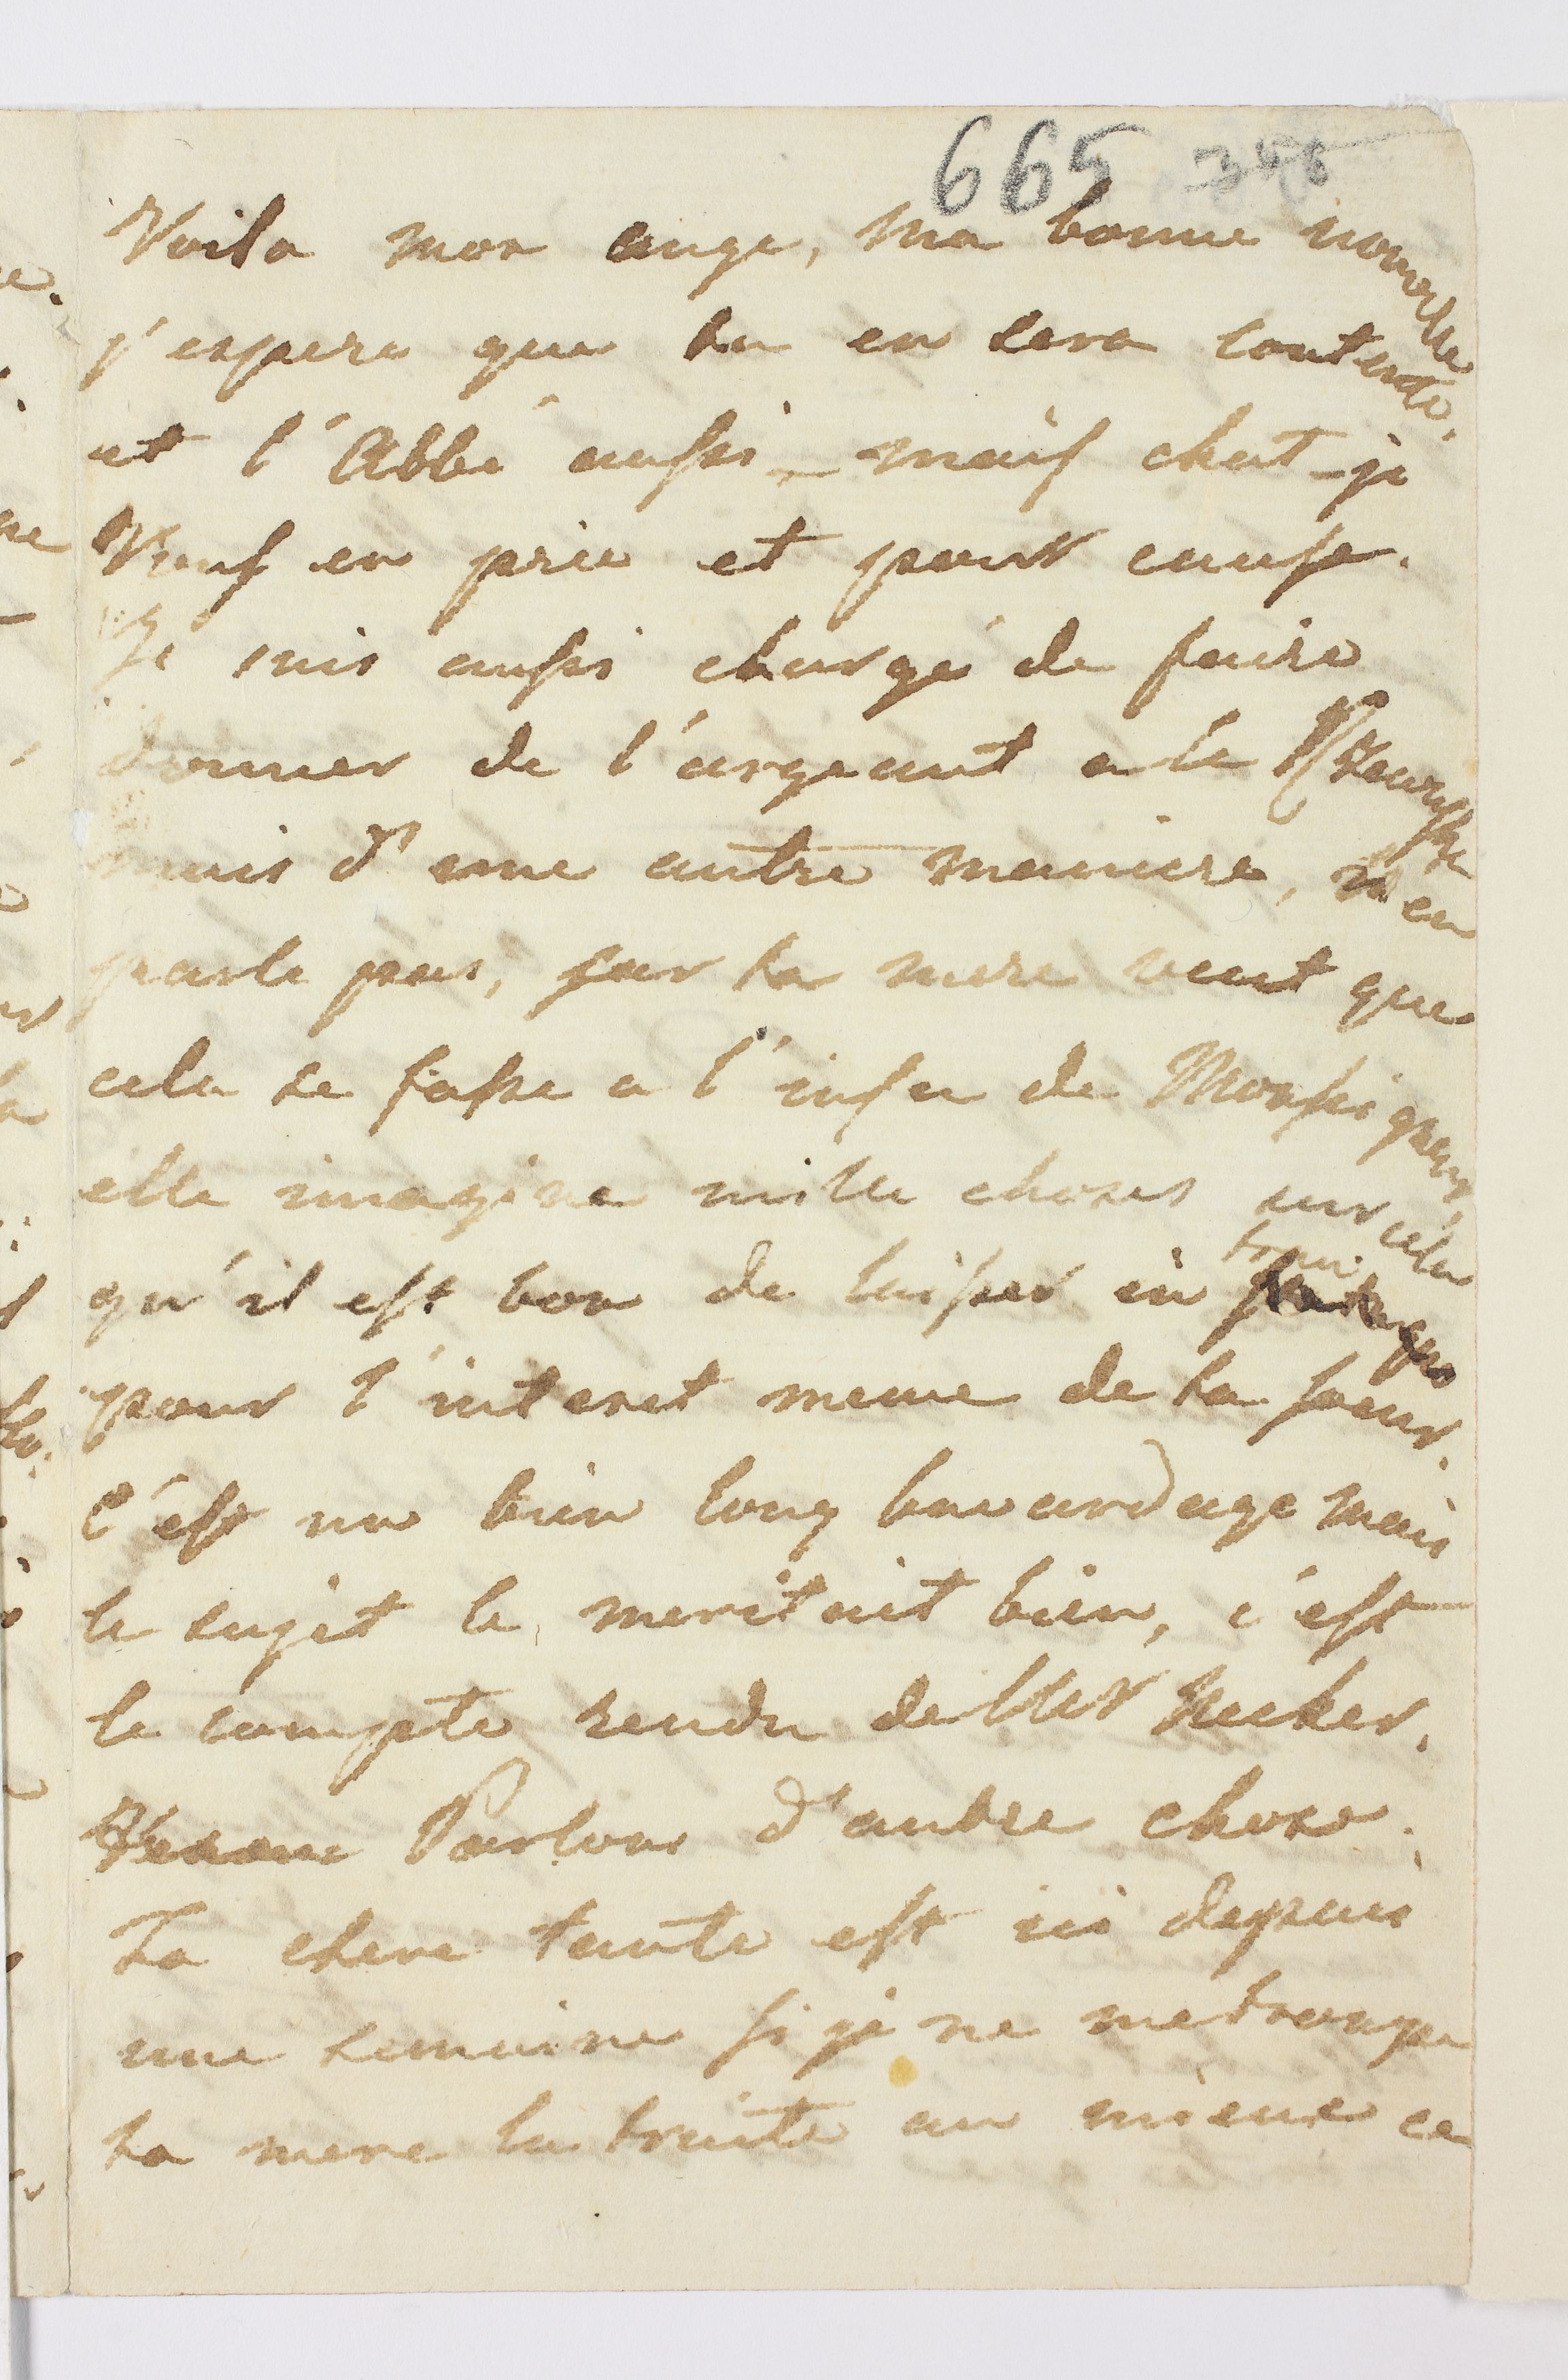 665 348
Voila mon ange, ma bonne nouvelle
j'espere que tu en sera contente,
et l'Abbé aussi _ maif chut _ je
Vouf en prie et pour cause.
Je suis aussi chargé de faire
donner de l'argeant a la
mais d'une autre maniere, n'en
parle pas, car ta mere veut que
cela se fasse a l'insu de Monseigneur,
elle imagine mille choses sur cela
qu'il est bon de laisser en
train
pour l'interet meme de ta soeur.
C'est un bien long bavardage mais
le sujet le meritait bien, c'est
le compte rendu de Mer Necker.
Parlons d'autre chose.
Ta chere tante est ici depuis
une semaine si je ne me trompe
ta mere la traite au mieux ce